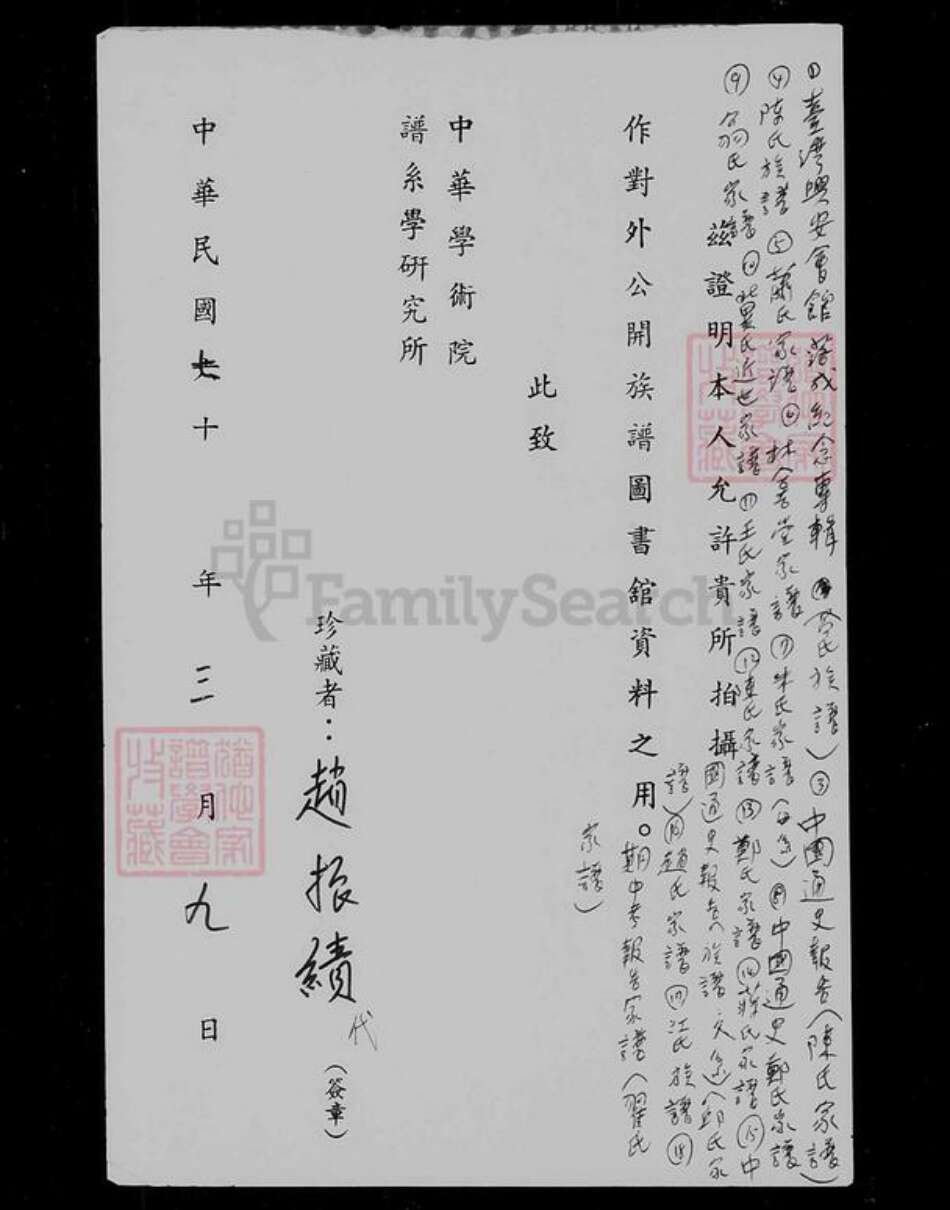 ①臺灣興安會館落成紀念專輯 ② 氏族譜）③中國通史報告（陳氏家譜）
④陳氏族譜 ⑤蕭氏家譜 ⑥林 堂家譜 ⑦朱氏家譜（ ）⑧中國通史鄭氏家譜
⑨翁氏家譜 ⑩ 氏近世家譜 ⑪王氏家譜 ⑫ 氏家譜 ⑬鄭氏家譜 ⑭蔣氏家譜 ⑮中
國通史報告（族譜文 ）（邱氏家
譜）⑯趙氏家譜 ⑰江氏族譜 ⑱
期中考報告家譜（翟氏
家譜）
茲證明本人允許貴所拍攝
作對外公開族譜圖書館資料之用。
此致
中華學術院
譜系學研究所
珍藏者：趙振績代（簽章）
中華民國七十年三月九日
譜學會
收藏
FamilySearch